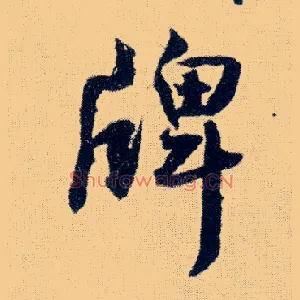 牌
Shufawang.CN